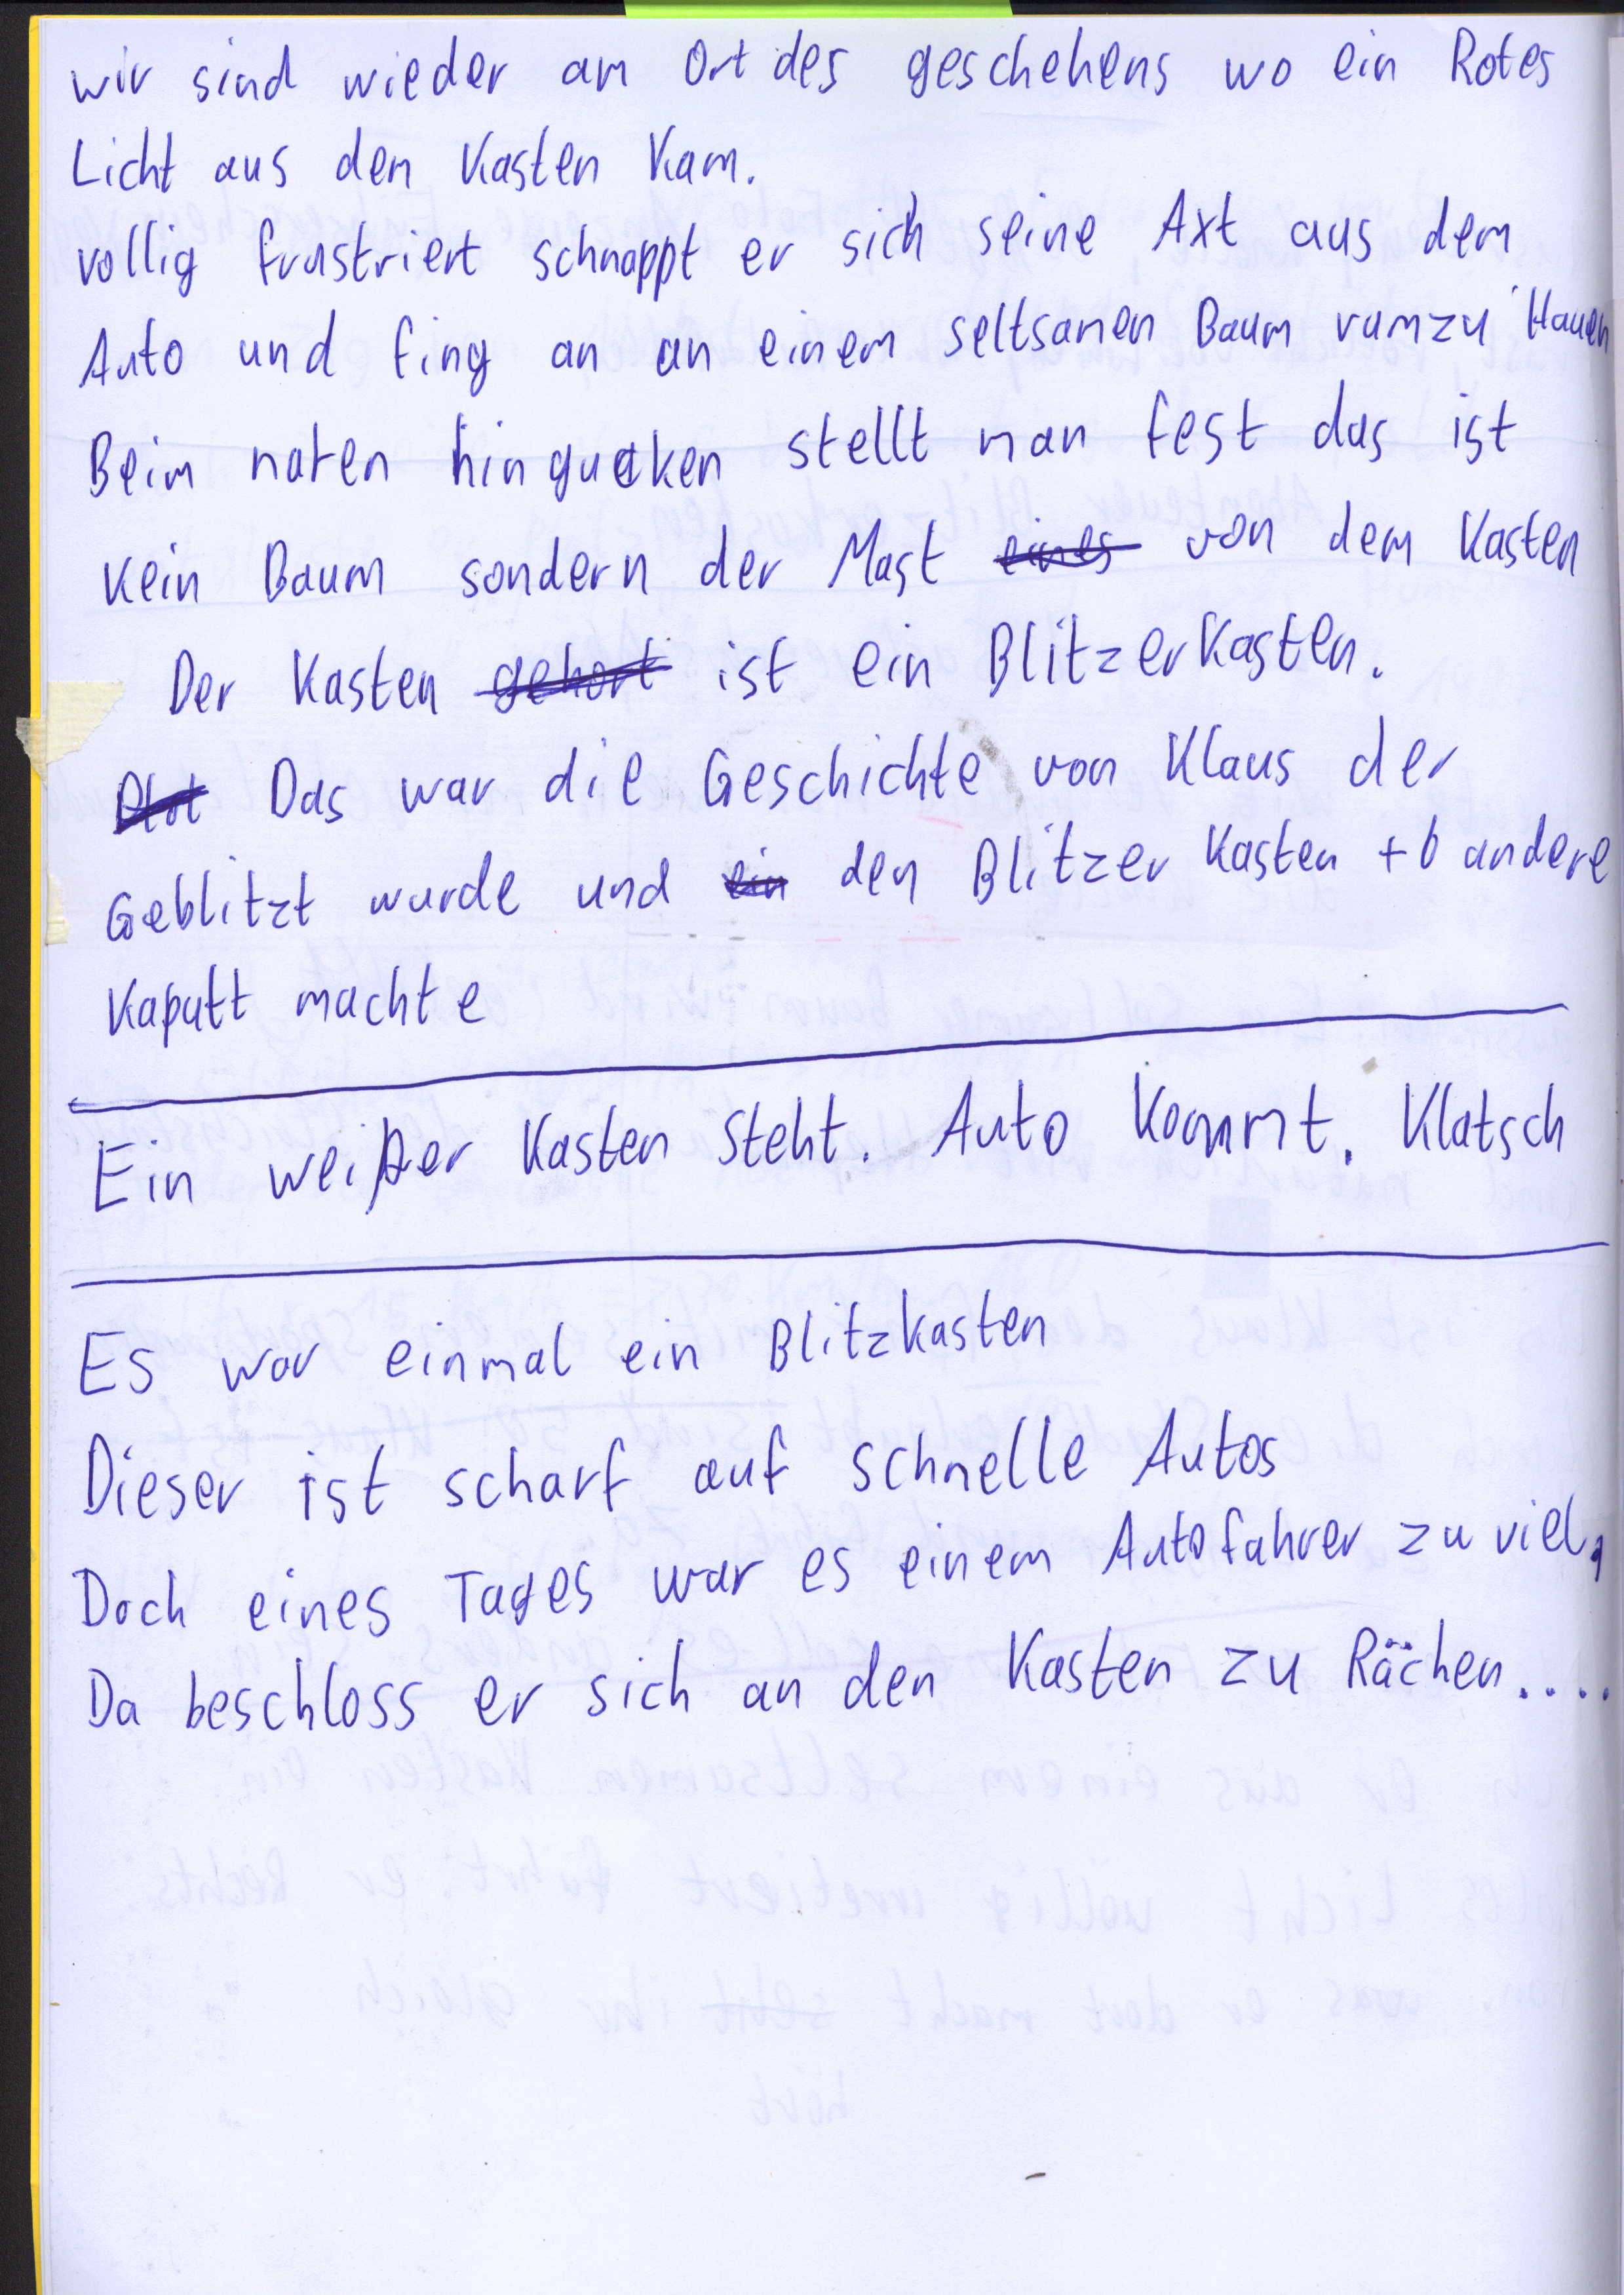 wir sind wieder am Ort des geschehens wo ein Rotes
Licht aus den Kasten Kam.
vollig frustriert schnappt er sich seine Axt aus dem
Auto und fing an an einem seltsamen Baum rumzu Hauen
Beim naren hingucken stellt man fest das ist
Kein Baum sondern der Mast eines von dem Kasten
Der Kasten gehort ist ein BlitzerKasten.
Das war die Geschichte von Klaus der
Geblitzt wurde und ein den Blitzer Kasten + 6 andere
Kaputt machte
Ein weißer Kasten steht. Auto Kommt. Klatsch
Es war einmal ein Blitzkasten
Dieser ist scharf auf schnelle Autos
Doch eines Tages war es einem Autofahrer zu viel,
Da beschloss er sich an den Kasten zu Rächen....